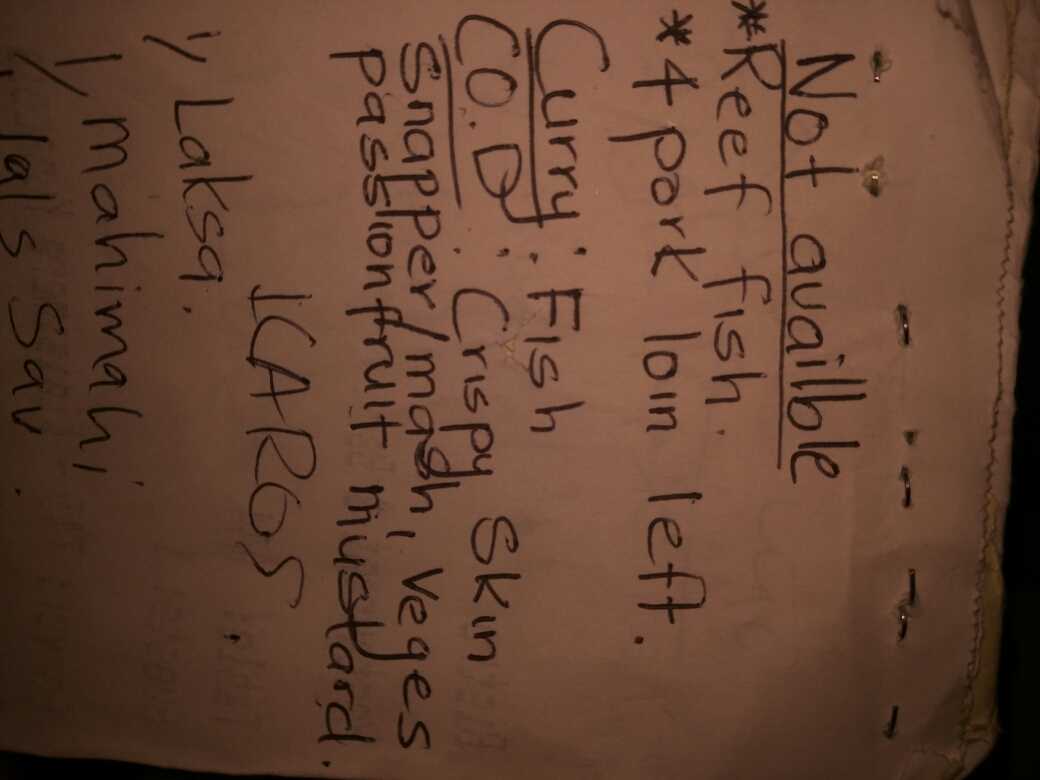 Not availble
*Reef fish.
* 4 pork loin left.
Curry : Fish
CO.D : Crispy Skin
Snapper/maahi, Veges
passionfruit mustard.
ICARGS
1/ Laksa.
1/ mahimahi
Sav.